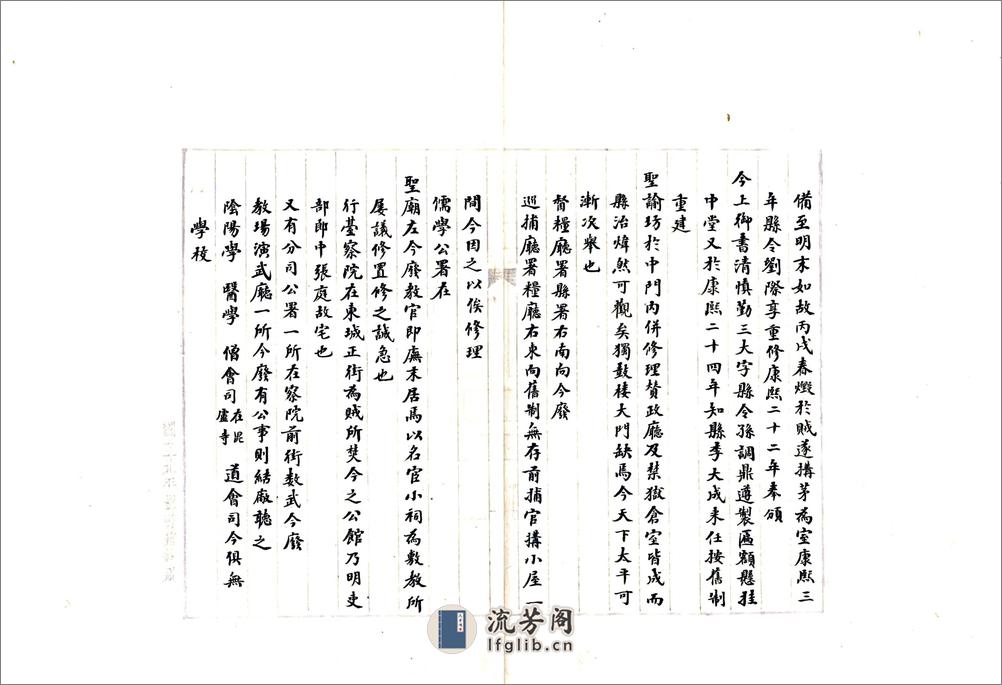 備至明末如故丙戌春燬於賊遂搆茅為室康熙三
年縣令劉際享重修康熙二十二年奉頒
今上御書清慎勤三大字縣令孫調鼎遵製匾額懸挂
中堂又於康熙二十四年知縣李大成来任按舊制
重建
聖諭坊於中門丙併修理贊政廳及禁獄倉室皆成而
縣治煒然可觀矣獨鼓楼大門缺焉今天下太平可
漸次舉也
督糧廳署縣署右南向今廢
巡捕廳署糧廳右東向舊制無存前捕官搆小屋一
間今因之以俟修理
儒學公署在
聖廟左今廢教官即廡末居焉以名宦小祠為敷教所
屡議修置修之誠急也
行臺察院在東城正街為賊所焚今之公館乃明吏
部郎中張庭故宅也
又有分司公署一所在察院前街数武今廢
教場演武廳一所今廢有公事則結廠聽之
陰陽學 醫學 僧會司 在毘盧寺 道會司今俱無
學校
流芳阁
lfglib.cn